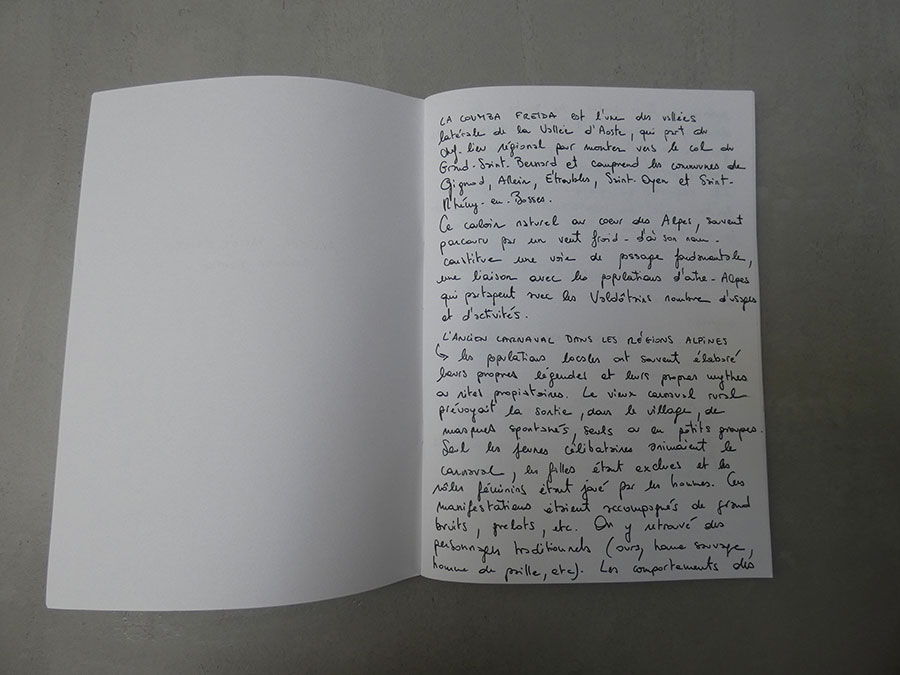 LA COUMBA FREIDA est l'une des vallées
latérale de la Vallée d'Aoste, qui part du
chf-lieu régional pour monter vers le col du
Grand-Saint-Bernard et comprend les communes de
Gignod, Allein, Etroubles, Saint-Oyen et Saint-
Rhémy-en-Bosses.
Ce couloir naturel au coeur des Alpes, souvent
parcouru par un vent froid - d'où son nom -
constitue une voie de passage fondamentale,
une liaison avec les populations d'outre-Alpes
qui partagent avec les Valdôtains nombre d'usages
et d'activités.
L'ANCIEN CARNAVAL DANS LES RÉGIONS ALPINES
↳ les populations locales ont souvent élaboré
leurs propres légendes et leurs propres mythes
ou rites propiatoires. Le vieux carnaval rural
prévoyait la sortie, dans le village, de
masques spontanés, seuls ou en petits groupes.
Seul les jeunes célibataires animaient le
carnaval, les filles étant exclues et les
rôles féminins étant joué par les hommes. Ces
manifestations étaient accompagnés de grand
bruits, grelots, etc. On y retrouvé des
personnages traditionnels (ours, home sauvage,
homme de paille, etc). Les comportements des